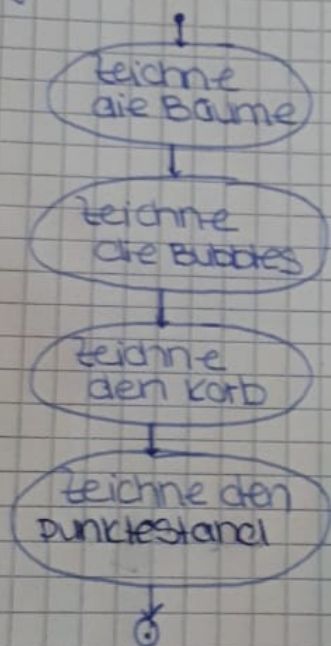 zeichne
die Bäume
zeichne
die Bubbles
zeichne
den Korb
zeichne den
Punktestand